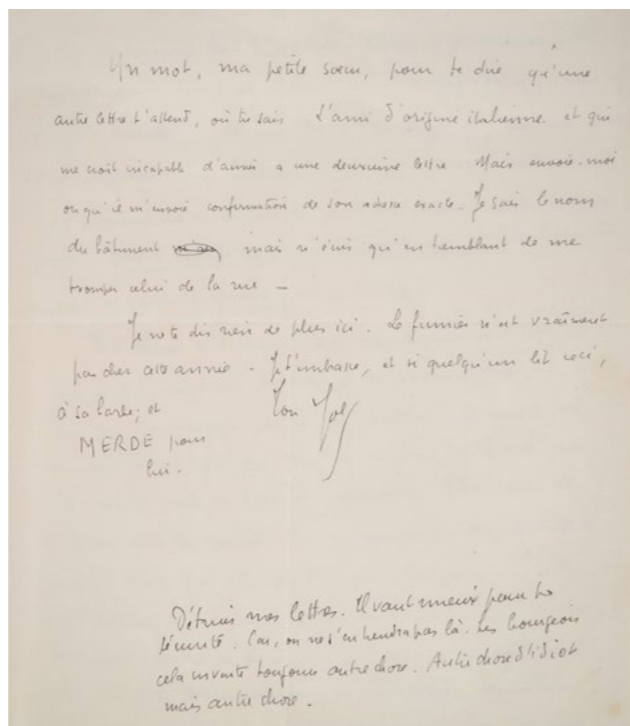 Un mot, ma petite sœur, pour te dire qu'une
autre lettre t'attend, où tu sais L'ami d'origine italienne. et qui
me croit incapable d'année a une deuxième lettre. Mais envoie-moi
ou qu'il m'envoie confirmation de son adresse exacte. Je sais le nom
du bâtiment mais n'écris qu'en tremblant de me
tromper celui de la rue —
Je ne te dis rien de plus ici. Le fumier n'est vraiment
pas cher cette année - Je t'embrasse, et si quelqu'un lit ceci,
à sa barbe; et Ton
MERDE pour
lui.
Détruis mes lettres. Il vaut mieux pour ta
sécurité. Car, on ne s'en tiendra pas là. Les bourgeois
cela invente toujours autre chose. Autre chose d'idiot
mais autre chose.